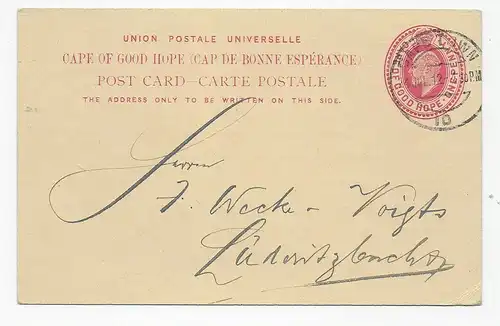 UNION POSTALE UNIVERSELLE
CAPE OF GOOD HOPE (CAP DE BONNE ESPÉRANCE)
POST CARD—CARTE POSTALE
THE ADDRESS ONLY TO BE WRITTEN ON THIS SIDE.
CAPE OF GOOD HOPE · ONE PENNY
CAPE TOWN
12
PM
10
Herrn
J. Wecke - Voigts
Lüderitzbucht